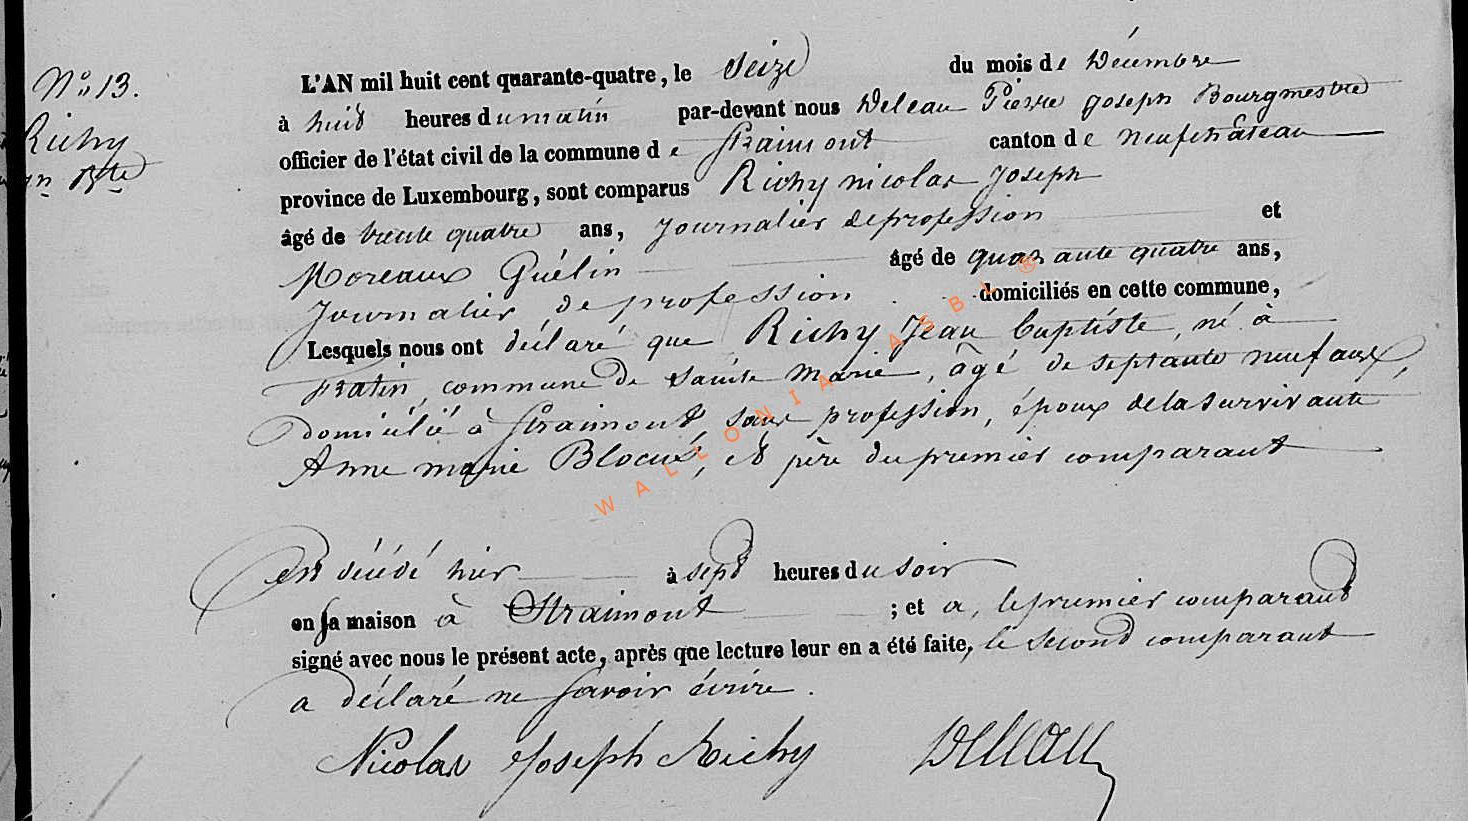 N° 13.
Richy
Jn Bte
L'AN mil huit cent quarante-quatre, le Seize du mois de Décembre
à huit heures du matin par-devant nous Deleau Pierre Joseph Bourgmestre
officier de l'état civil de la commune de Straimont canton de Neufchâteau
province de Luxembourg, sont comparus Richy nicolas Joseph
âgé de trente quatre ans, Journalier de profession et
Moreaux Guélin âgé de quarante quatre ans,
Journalier de profession domiciliés en cette commune,
Lesquels nous ont déclaré que Richy Jean Baptiste, né à
Fratin, commune de Sainte Marie, âgé de septante neuf ans,
domicilié à Straimont, sans profession, époux de la survivante
Anne marie Blocus, et père du premier comparant
Est décédé hier à sept heures du soir
en sa maison à Straimont ; et a, le premier comparant
signé avec nous le présent acte, après que lecture leur en a été faite, le second comparant
a déclaré ne savoir écrire.
Nicolas Joseph Richy Deleau
WALLONIA ASBL ®